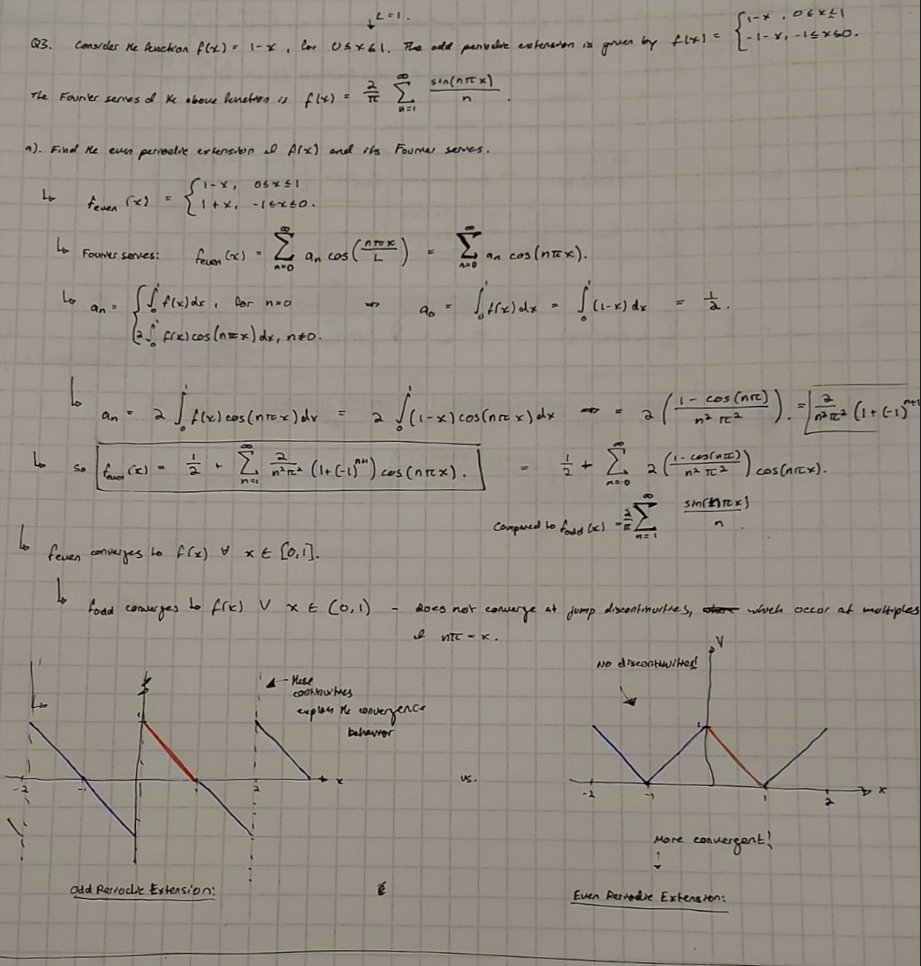 ↓ L=1.
Q3. Consider the function f(x) = 1-x, for 0≤x≤1. The odd periodic extension is given by f(x) = { 1-x, 0≤x≤1
-1-x, -1≤x≤0.
The Fourier series of the above function is f(x) = 2/π ∑_{n=1}^{∞} sin(nπx)/n.
a). Find the even periodic extension of f(x) and its Fourier series.
↳ f_even(x) = { 1-x, 0≤x≤1
1+x, -1≤x≤0.
↳ Fourier series: f_even(x) = ∑_{n=0}^{∞} a_n cos(nπx/L) = ∑_{n=0}^{∞} a_n cos(nπx).
↳ a_n = { ∫_0^1 f(x)dx, for n=0 ⇒ a_0 = ∫_0^1 f(x)dx = ∫_0^1 (1-x)dx = 1/2.
2∫_0^1 f(x)cos(nπx)dx, n≠0.
↳ a_n = 2∫_0^1 f(x)cos(nπx)dx = 2∫_0^1 (1-x)cos(nπx)dx ⇒ = 2((1-cos(nπ))/(n²π²)). = 2/(n²π²) (1+(-1)^{n+1}
↳ so f_even(x) = 1/2 + ∑_{n=1}^{∞} 2/(n²π²) (1+(-1)^{n+1})cos(nπx). = 1/2 + ∑_{n=0}^{∞} 2((1-cos(nπ))/(n²π²))cos(nπx).
compared to f_odd(x) = 2/π ∑_{n=1}^{∞} sin(nπx)/n
↳ f_even converges to f(x) ∀ x ∈ [0,1].
↳ f_odd converges to f(x) ∀ x ∈ (0,1) - does not converge at jump discontinuities, which occur at multiples
of nπ = x.
No discontinuities!
← these
continuities
explain the convergence
behavior
y
1
-2 -1 1 2 x
vs.
1
-2 -1 1 2 x
More convergent!
Odd Periodic Extension:
Even Periodic Extension: